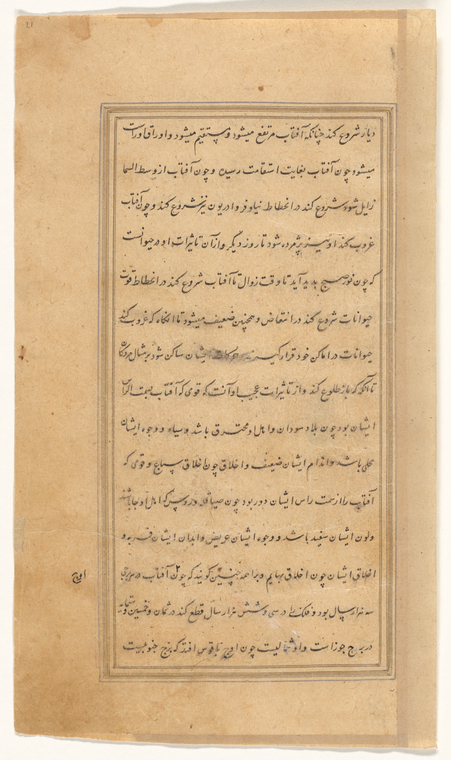 دیار شروع کند چنانکه آفتاب مرتفع میشود و مستقیم میشود و او را قا و را
میشود چون آفتاب بغایت استقامت رسیده و چون آفتاب از وسط السما
زایل شود شروع کند در انحطاط نیلوفر و آذریون نیز شروع کند و چون آفتاب
غروب کند او نیز پژمرده شود تا روز دیگر و از آن تاثیرات او در حیوانست
که چون نور صبح پدید آید تا وقت زوال تا آفتاب شروع کند در انحطاط قوت
حیوانات شروع کند در انتقاص و همچنین ضعیف میشود تا آنگاه که غروب کند
حیوانات در اماکن خود قرار گیرند ساکن شود بر مثال مردگان
تا آنگه که باز طلوع کند و از تاثیرات عجیب او آنست که قومی که آفتاب بسمت الراس
ایشان بود چون بلاد سودان و اهل او محترق باشد و سیاه و وجوه ایشان
باشد و اندام ایشان ضعیف و اخلاق چون اخلاق سباع و قومی که
آفتاب را از سمت راس ایشان دور بود چون صقالبه و روس که اهل او
ولون ایشان سفید باشد و وجوه ایشان عریض و ابدان ایشان فربه و
اخلاق ایشان چون اخلاق بهایم و براهمه چنین گویند که چون آفتاب در برجی
سه هزار سال بود و فلک را در سی و شش هزار سال قطع کند در ثمان و خمسین و ستمایه
در برج جوزاست و او شمالیست چون اوج با قوس افتد که برج جنوبیست
اوج
٢١